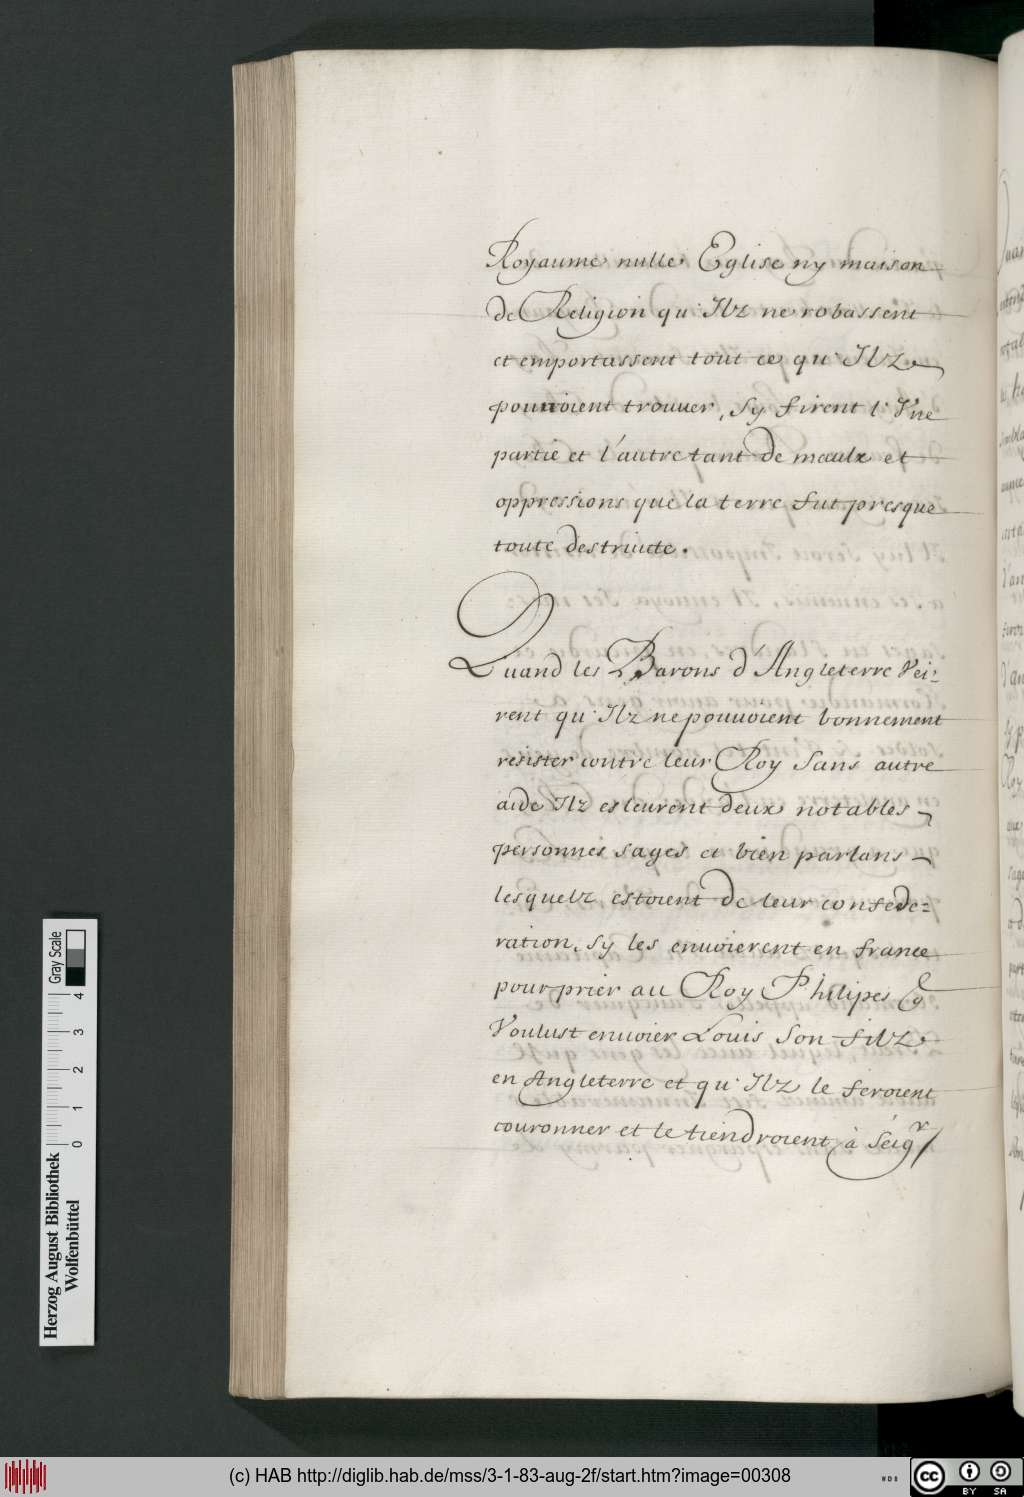 Royaume nulle Eglise ny maison
de Religion qu'Ilz ne robassent
et emportassent tout ce qu'Ilz
pouuoient trouuer, Sy firent l'Vne
partie et l'autre tant de maulx et
oppressions que la terre fut presque
toute destruicte.
Quand les Barons d'Angleterre Vei=
rent qu'Ilz ne pouuoient bonnement
resister contre leur Roy Sans autre
aide Ilz esleurent deux notables
personnes sages et bien parlans
lesquelz estoient de leur confede=
ration, Sy les enuoierent en france
pour prier au Roy Philipes q
Voulust enuoier Louis Son filz
en Angleterre et qu'Ilz le feroient
couronner et le tiendroient à Seigr
Herzog August Bibliothek
Wolfenbüttel
0 1 2 3 4
Gray Scale
(c) HAB http://diglib.hab.de/mss/3-1-83-aug-2f/start.htm?image=00308
WDB
cc
BY SA